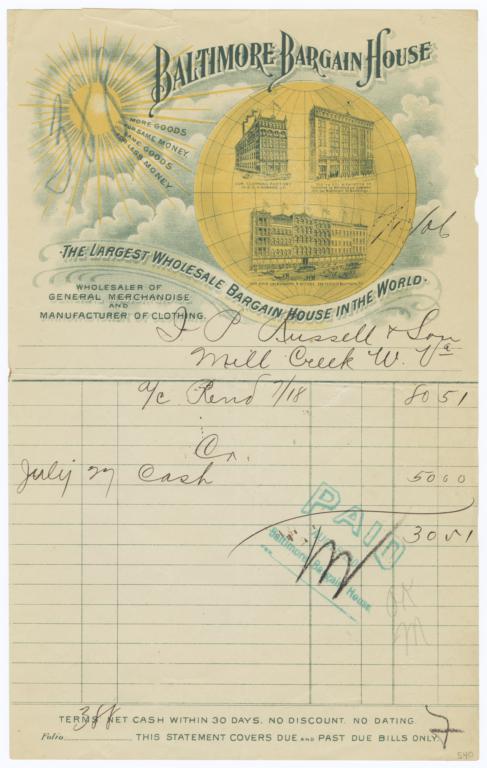 BALTIMORE BARGAIN HOUSE
MORE GOODS
FOR SAME MONEY
SAME GOODS
FOR LESS MONEY
OUR CLOTHING FACTORY
/06
THE LARGEST WHOLESALE BARGAIN HOUSE IN THE WORLD.
WHOLESALER OF
GENERAL MERCHANDISE
AND
MANUFACTURER OF CLOTHING.
I P Russell & Son
Mill Creek W. Va
a/c Rend 7/18 80 51
Cr.
July 27 Cash 50 00
30 51
PAID
Baltimore Bargain House
M
OK
M
388
TERMS NET CASH WITHIN 30 DAYS. NO DISCOUNT. NO DATING.
Folio THIS STATEMENT COVERS DUE AND PAST DUE BILLS ONLY.
7
540